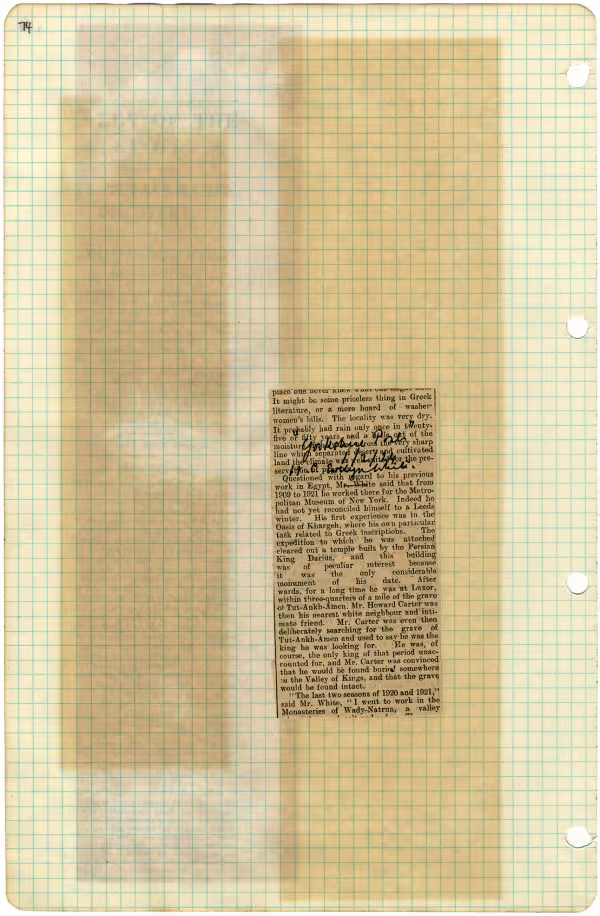 74
place one never knew what one might
It might be some priceless thing in Greek
literature, or a mere hoard of washer-
women's bills. The locality was very dry.
It probably had rain only once in twenty-
five or fifty years, and a mile out of the
moisture from the very sharp
line which separated desert and cultivated
land the climate was for the pre-
"Yorkshire Post"
H. G. Evelyn White.
Questioned with regard to his previous
work in Egypt, Mr. White said that from
1909 to 1921 he worked there for the Metro-
politan Museum of New York. Indeed he
had not yet reconciled himself to a Leeds
winter. His first experience was in the
Oasis of Khargeh, where his own particular
task related to Greek inscriptions. The
expedition to which he was attached
cleared out a temple built by the Persian
King Darius, and this building
was of peculiar interest because
it was the only considerable
monument of his date. After
wards, for a long time he was at Luxor,
within three-quarters of a mile of the grave
of Tut-Ankh-Amen. Mr. Howard Carter was
then his nearest white neighbour and inti-
mate friend. Mr. Carter was even then
deliberately searching for the grave of
Tut-Ankh-Amen and used to say he was the
king he was looking for. He was, of
course, the only king of that period unac-
counted for, and Mr. Carter was convinced
that he would be found buried somewhere
in the Valley of Kings, and that the grave
would be found intact.
"The last two seasons of 1920 and 1921,"
said Mr. White, "I went to work in the
Monasteries of Wady-Natrun, a valley